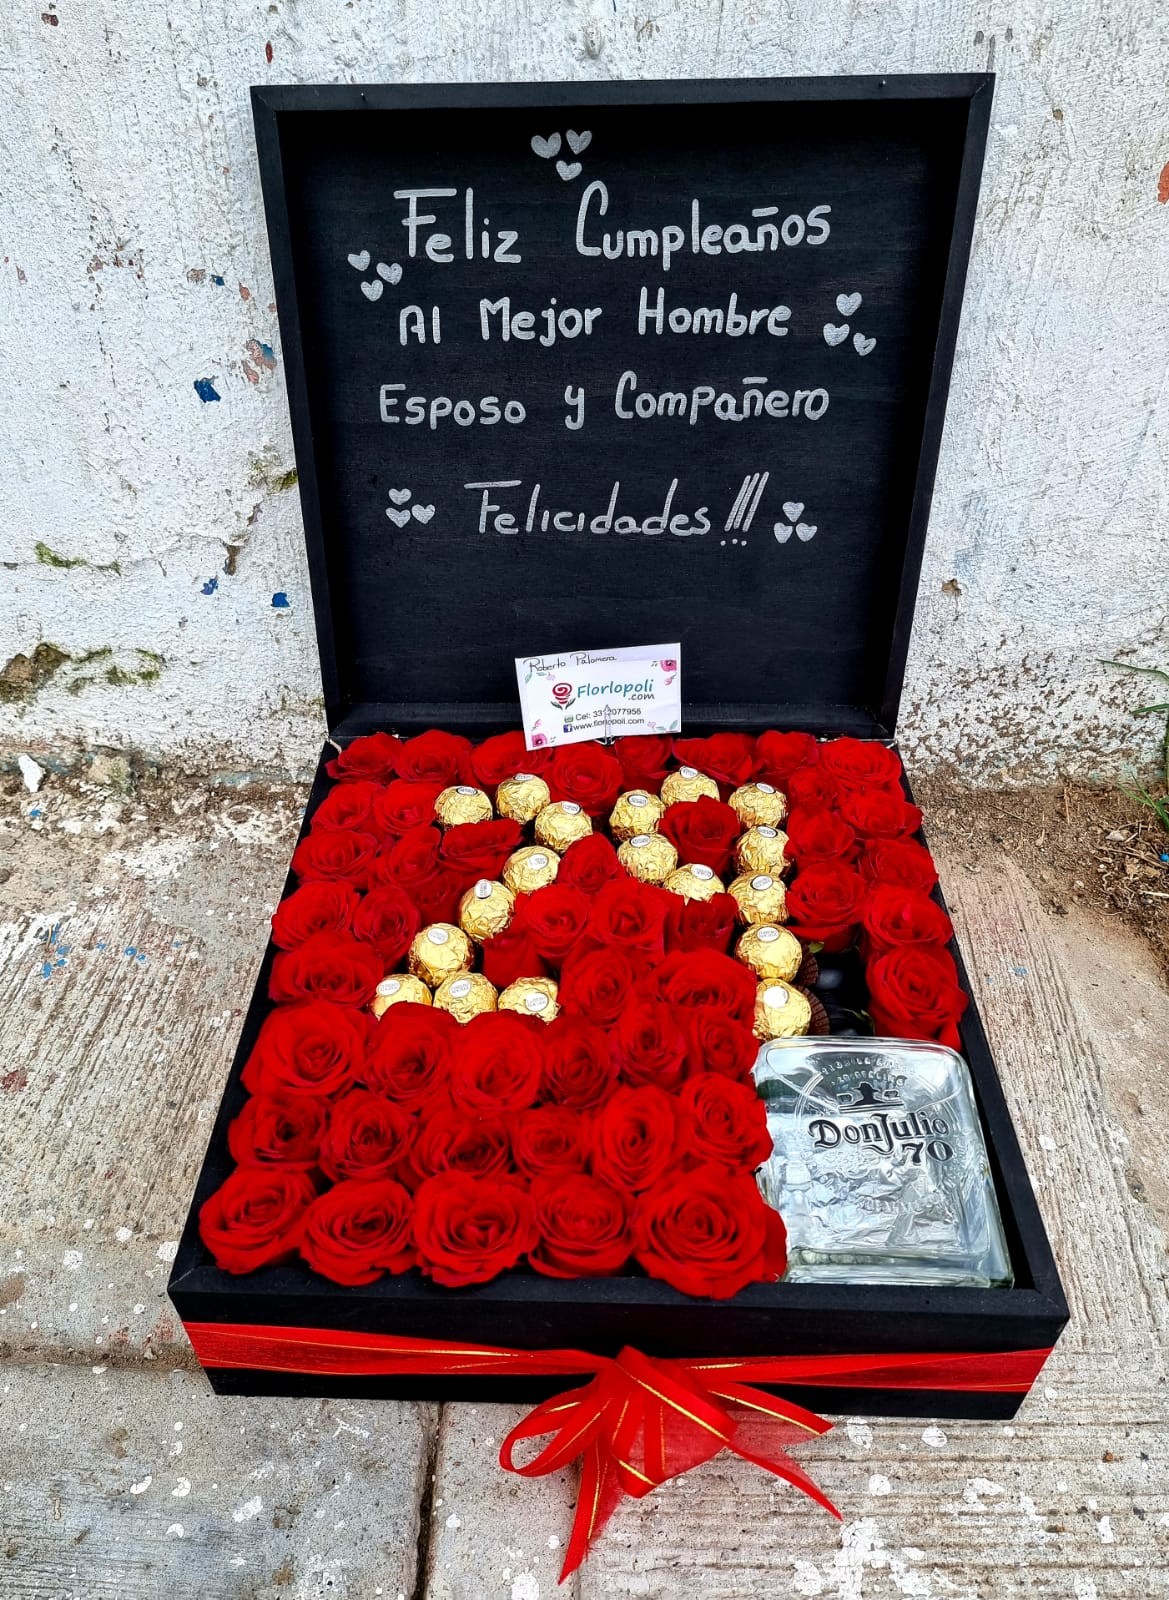 Feliz Cumpleaños
Al Mejor Hombre
Esposo y Compañero
Felicidades!!!
Roberto Palomera
Florlopoli
.com
Cel:
www.florlopoli.com
DonJulio
70